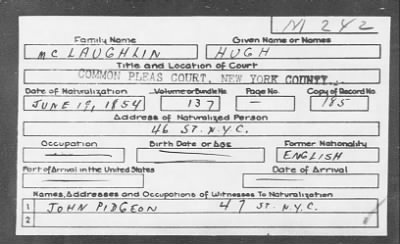 M 242
Family Name Given Name or Names
McLAUGHLIN HUGH
Title and Location of Court
COMMON PLEAS COURT, NEW YORK COUNTY...
Date of Naturalization Volume or Bundle No. Page No. Copy of Record No.
JUNE 19, 1854 137 — 185
Address of Naturalized Person
46 ST. N.Y.C.
Occupation Birth Date or Age Former Nationality
ENGLISH
Port of Arrival in the United States Date of Arrival
Names, Addresses and Occupations of Witnesses To Naturalization
1 JOHN PIDGEON 47 ST. N.Y.C.
2